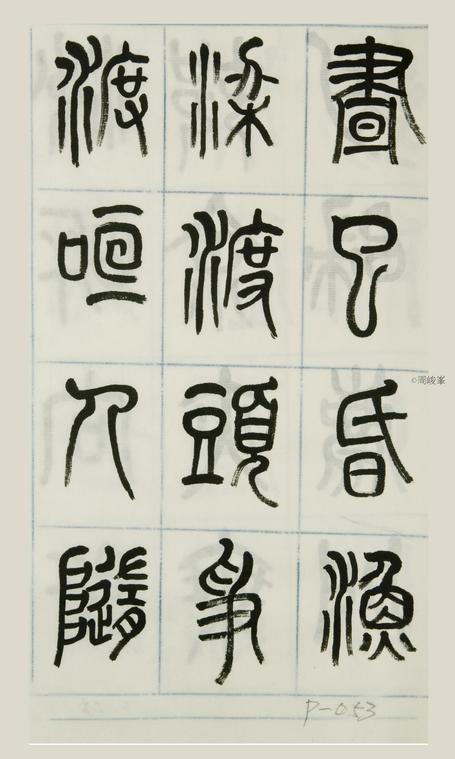 晝已昏漁
梁渡頭爭
渡喧人隨
©周峻峯
P-053